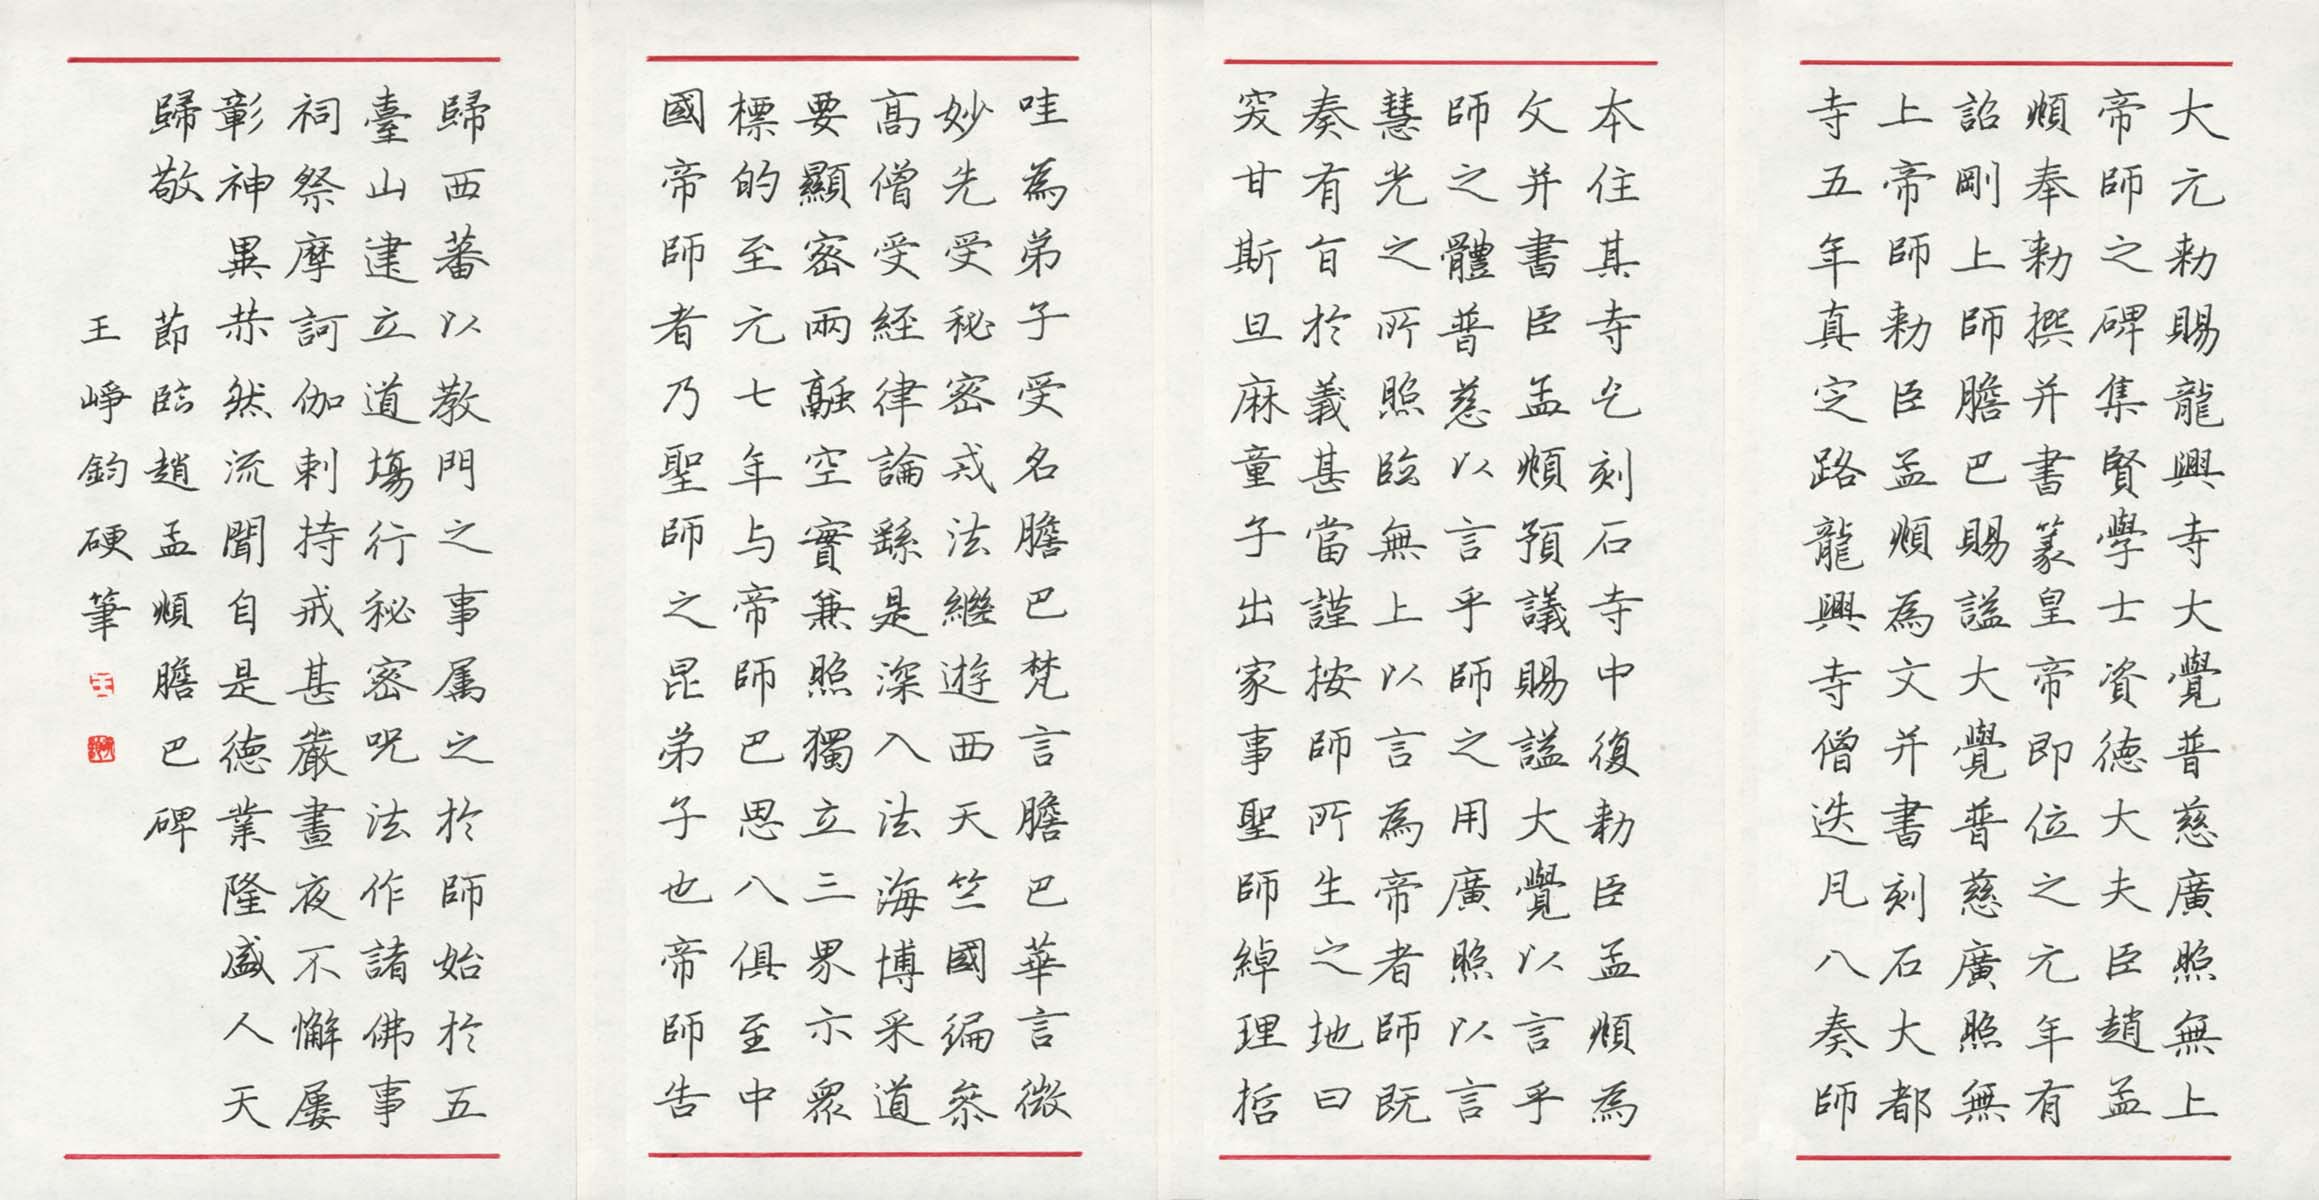 大元勑賜龍興寺大覺普慈廣照無上
帝師之碑集賢學士資德大夫臣趙孟
頫奉勑撰并書篆皇帝即位之元年有
詔剛上師膽巴賜謚大覺普慈廣照無
上帝師勑臣孟頫為文并書刻石大都
寺五年真定路龍興寺僧迭凡八奏師
本住其寺乞刻石寺中復勑臣孟頫為
文并書臣孟頫預議賜謚大覺以言乎
師之體普慈以言乎師之用廣照以言
慧光之所照臨無上以言為帝者師既
奏有旨於義甚當謹按師所生之地曰
突甘斯旦麻童子出家事聖師綽理哲
哇為弟子受名膽巴梵言膽巴華言微
妙先受秘密戒法繼遊西天竺國徧參
高僧受經律論繇是深入法海博采道
要顯密兩融空實兼照獨立三界示眾
標的至元七年与帝師巴思八俱至中
國帝師者乃聖師之昆弟子也帝師告
歸西蕃以教門之事属之於師始於五
臺山建立道場行秘密呪法作諸佛事
祠祭摩訶伽剌持戒甚嚴晝夜不懈屡
彰神異赫然流聞自是德業隆盛人天
歸敬 節臨趙孟頫膽巴碑
王崢鈞硬筆